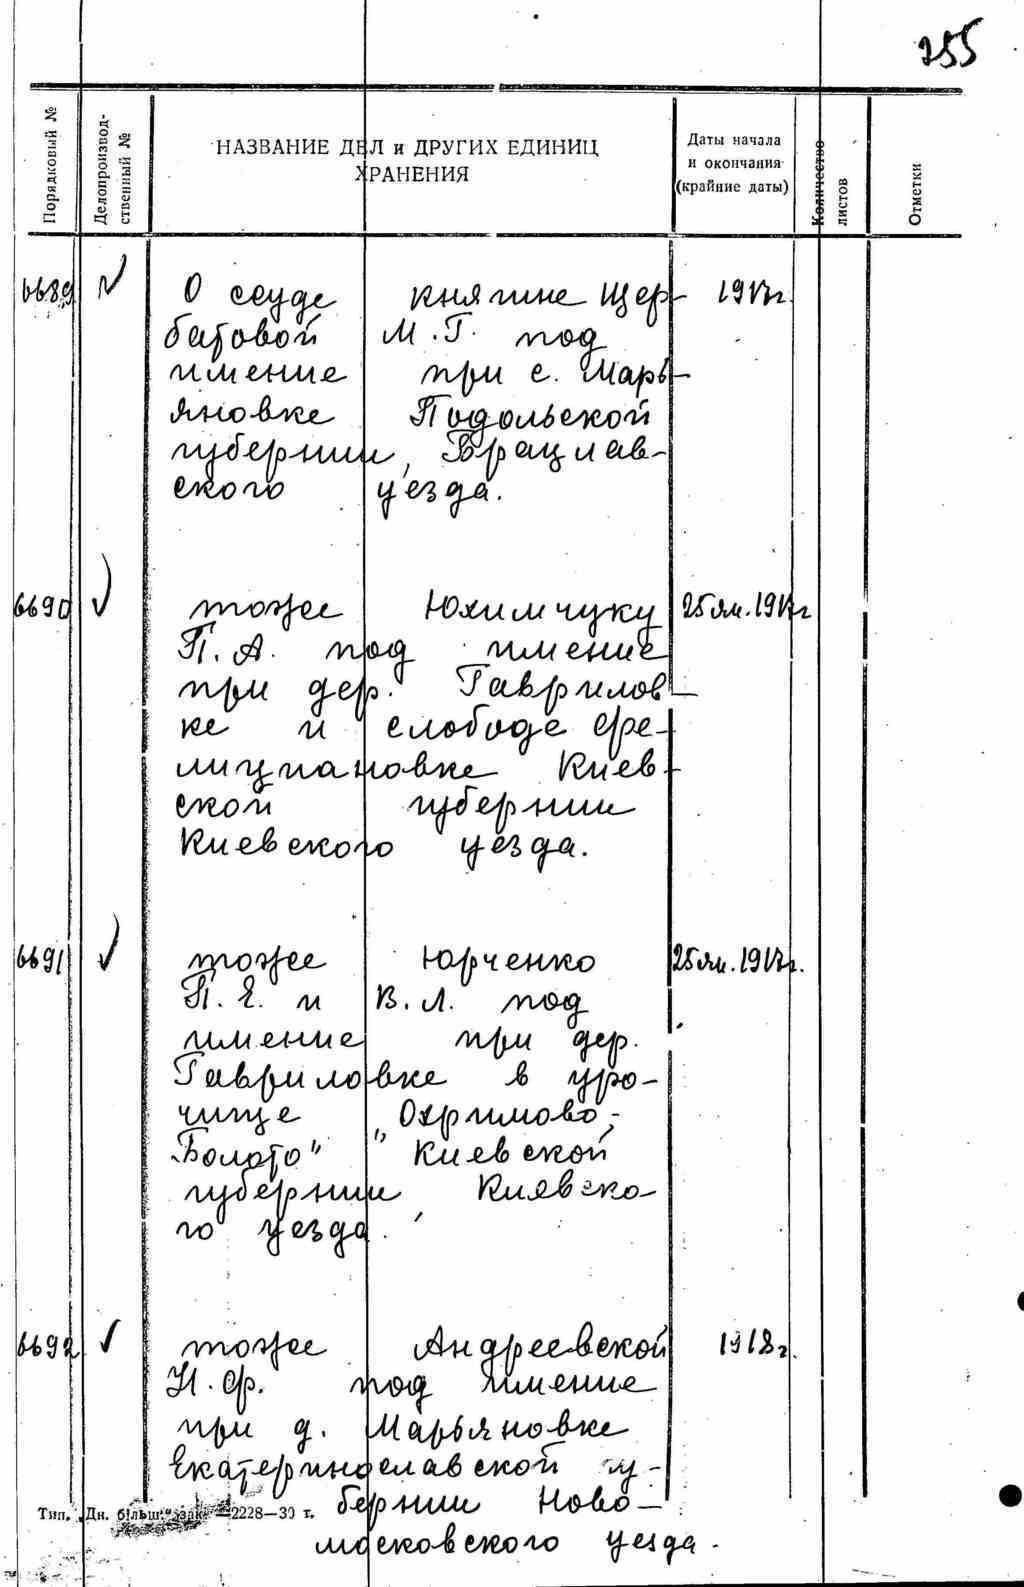 255
Порядковый №
Делопроизвод-
ственный №
НАЗВАНИЕ ДЕЛ и ДРУГИХ ЕДИНИЦ
ХРАНЕНИЯ
Даты начала
и окончания
(крайние даты)
Количество
листов
Отметки
6689 О ссуде княгине Щер- 1917г.
батовой М.Г. под
имение при с. Марь-
яновке Подольской
губернии, Брацлав-
ского уезда.
6690 тоже Юхимчуку 25 ян. 1917г
П.А. под имение
при дер. Гаврилов-
ке и слободе Фе-
лициановке Киев-
ской губернии
Киевского уезда.
6691 тоже Юрченко 25 ян. 1917г.
П.Е. и В.Л. под
имение при дер.
Гавриловке в уро-
чище „Охримово-
Болото" Киевской
губернии, Киевско-
го уезда.
6692 тоже Андреевской 1918г.
Н.Ф. под имение
при д. Марьяновке
Екатеринославской гу-
бернии Ново-
московского уезда.
Тип. Дн. більш." зак. —2228—30 т.